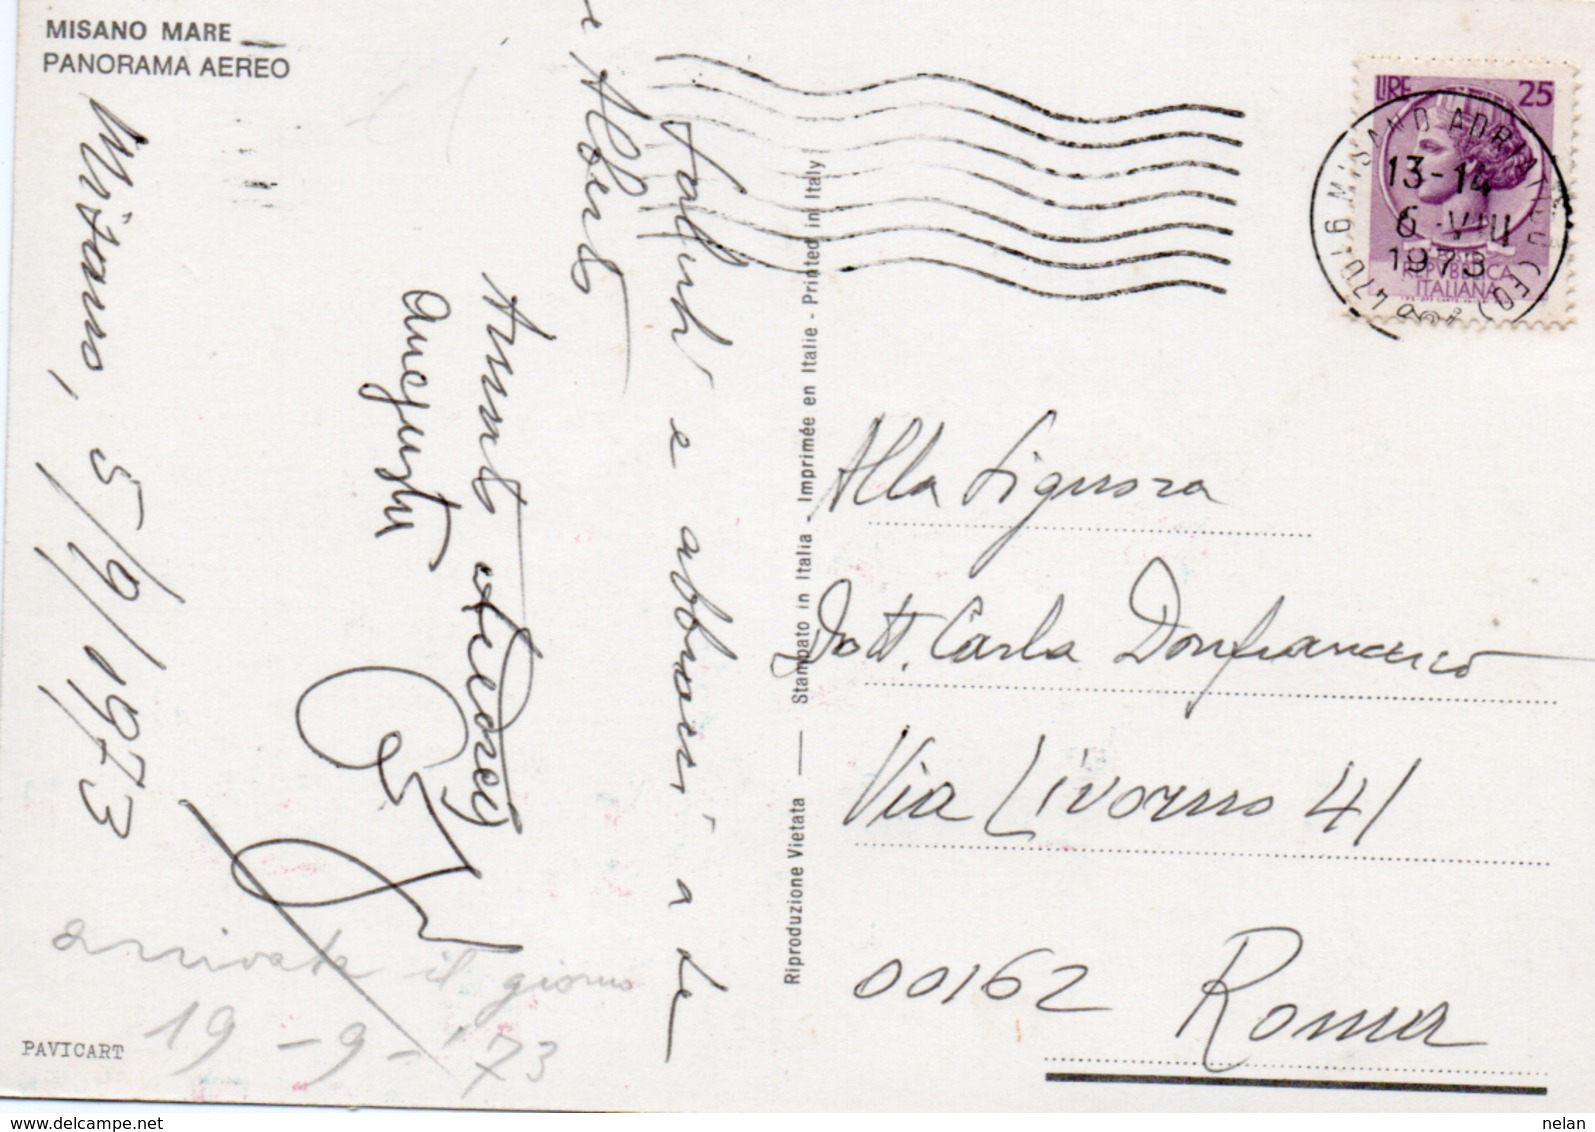 MISANO MARE
PANORAMA AEREO
Misano, 5/9/1973
Saluti e abbracci a te
e Alberto
arrivata il giorno
19-9-'73
PAVICART
Riproduzione Vietata — Stampato in Italia - Imprimée en Italie - Printed in Italy
LIRE 25
REPVBBLICA
ITALIANA
47016 MISANO ADRIATICO (FO)
13-14
6 · VIII
1973
Alla Signora
Dott. Carla Donfrancesco
Via Livorno 41
00162 Roma
www.delcampe.net
nelan